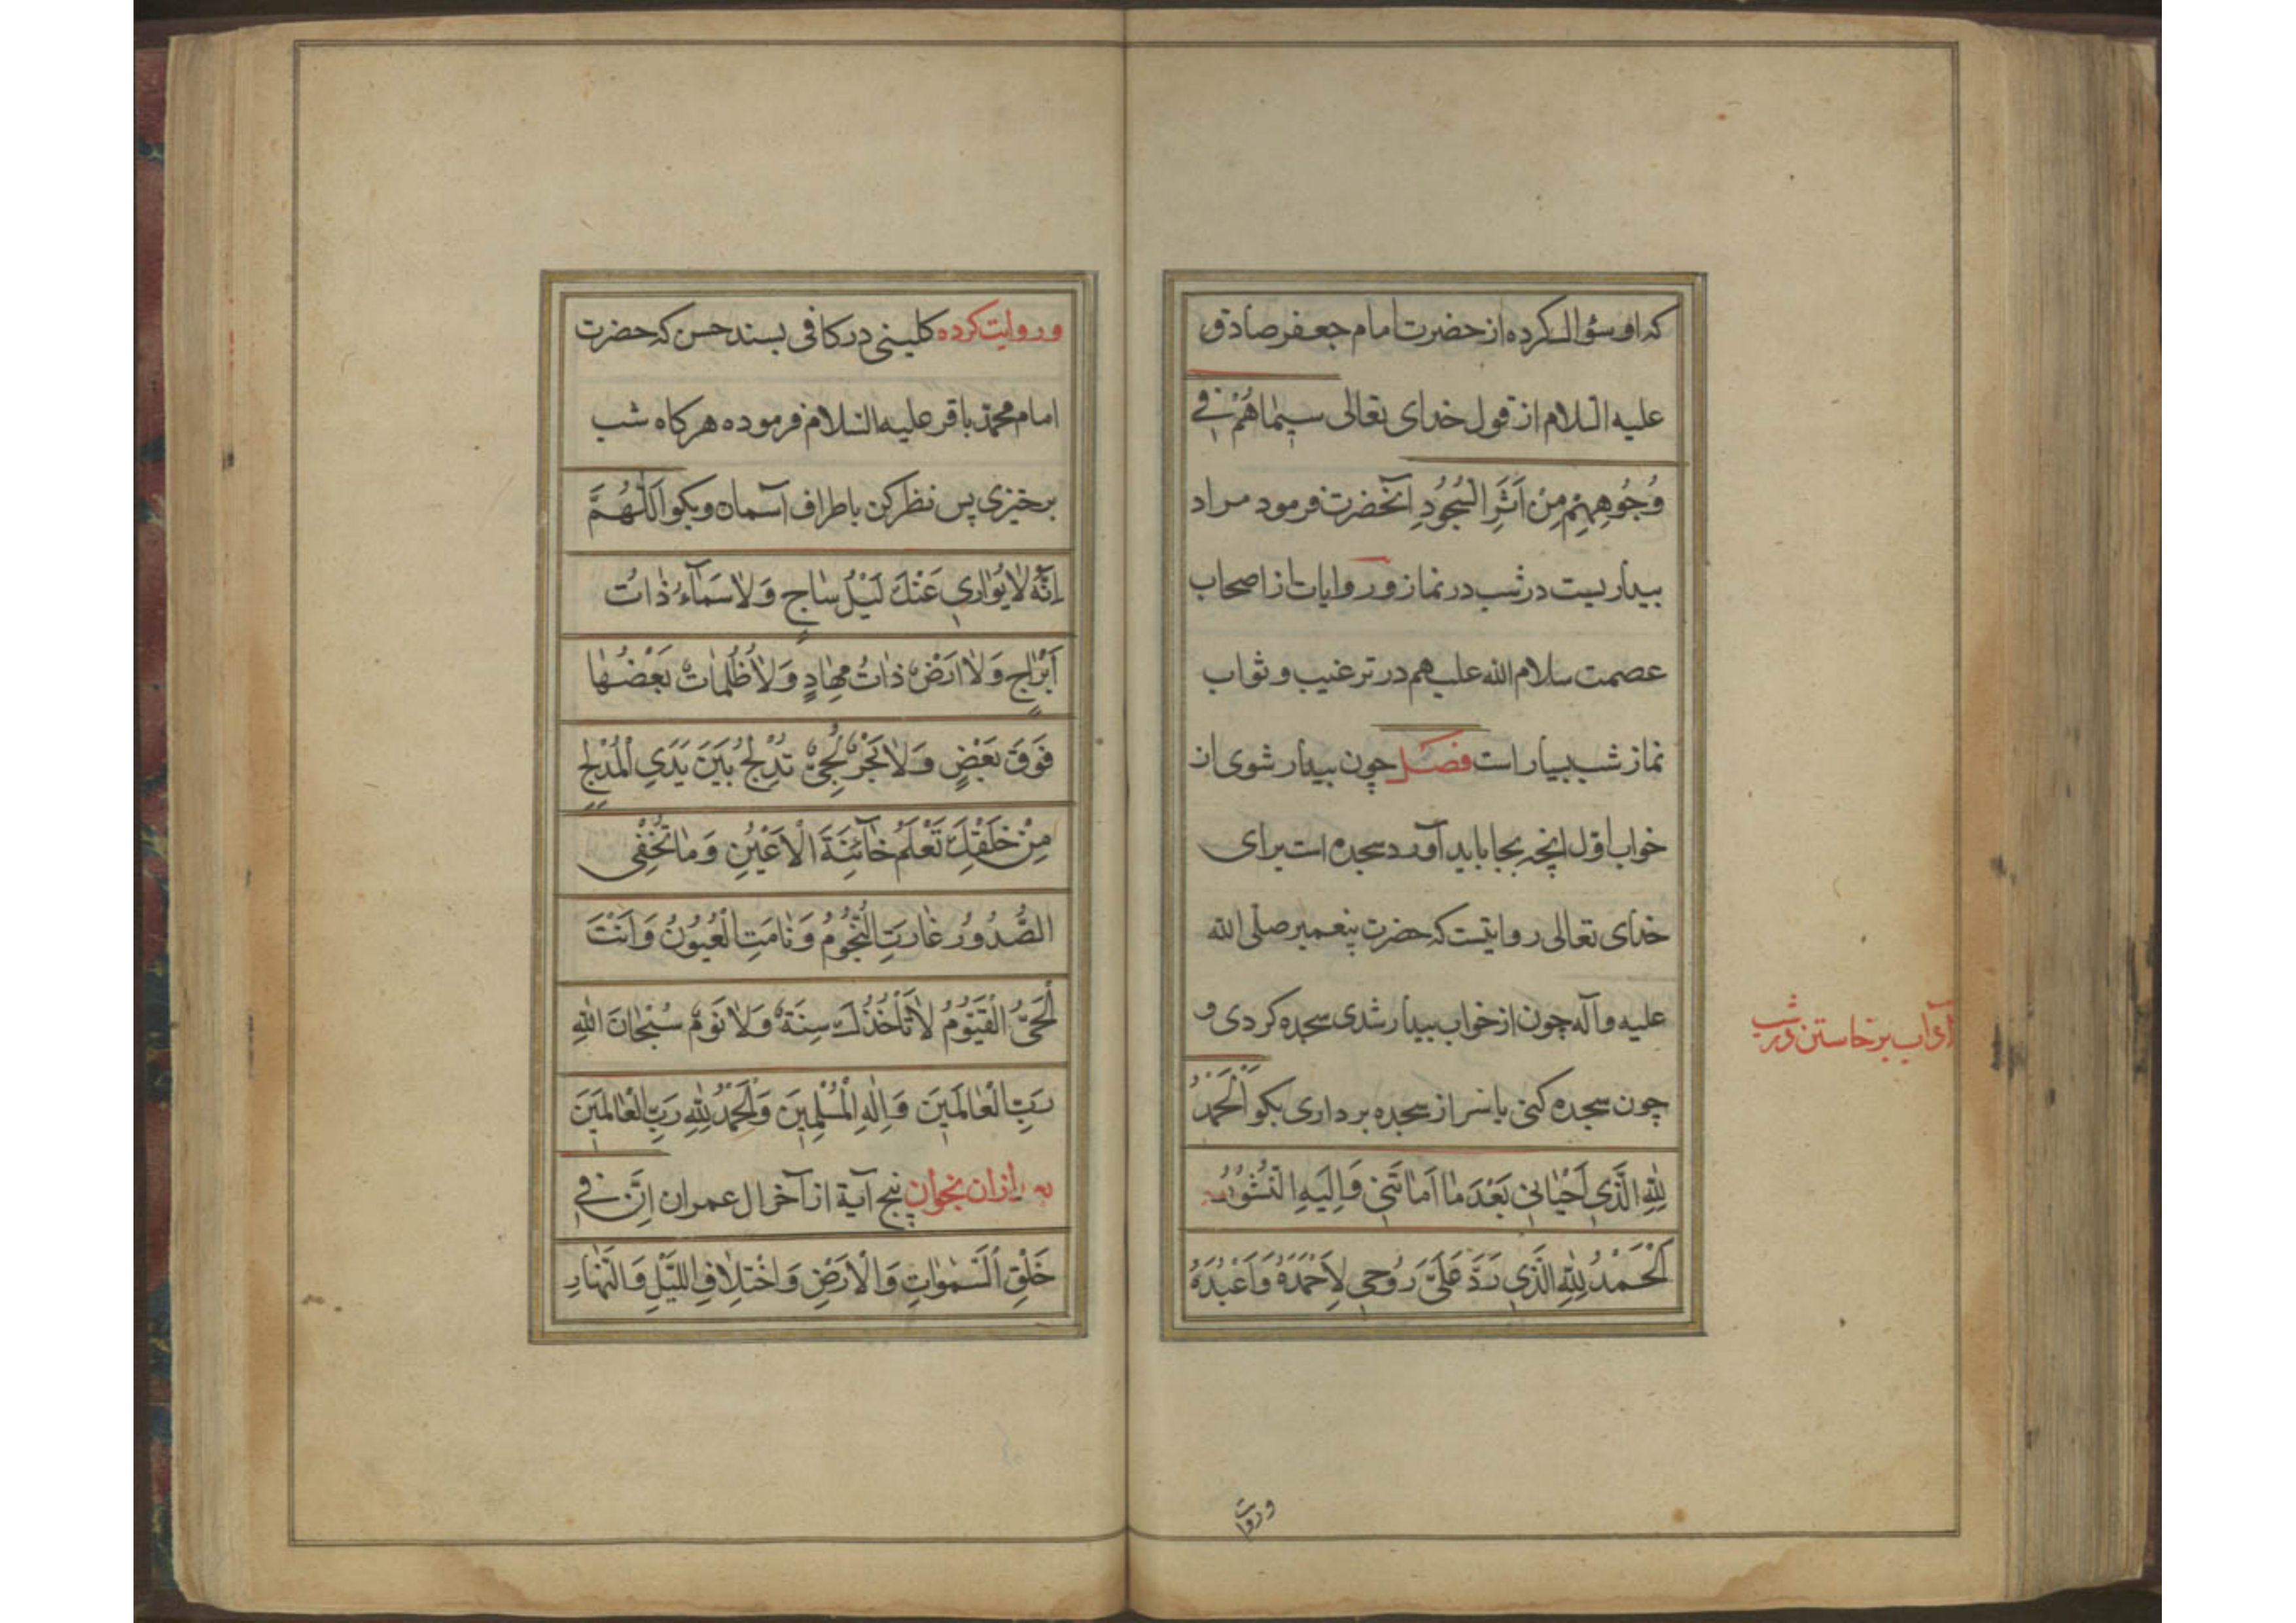 که او سؤال کرده از حضرت امام جعفر صادق
علیه السلام از قول خدای تعالی سِیمَاهُمْ فِی
وُجُوهِهِمْ مِنْ اَثَرِ السُّجُودِ آنحضرت فرمود مراد
بیداریست در شب در نماز و روایات از اصحاب
عصمت سلام الله علیهم در ترغیب و ثواب
نماز شب بسیار است فصل چون بیدار شوی از
خواب اول آنچه بجا باید آورد سجده است برای
خدای تعالی روایتست که حضرت پیغمبر صلی الله
علیه و آله چون از خواب بیدار شدی سجده کردی و
چون سجده کنی یا سر از سجده برداری بکو اَلْحَمْدُ
لِلّٰهِ الَّذِی اَحْیَانِی بَعْدَ مَا اَمَاتَنِی وَاِلَیْهِ النُّشُورُ
اَلْحَمْدُ لِلّٰهِ الَّذِی رَدَّ عَلَیَّ رُوحِی لِاَحْمَدَهُ وَاَعْبُدَهُ
آداب برخاستن در شب
وروایت
وروایت کرده کلینی در کافی بسند حسن که حضرت
امام محمد باقر علیه السلام فرموده هرکاه شب
برخیزی پس نظر کن باطراف آسمان و بکو اَللّٰهُمَّ
اِنَّهُ لَا یُوَارِی عَنْكَ لَیْلٌ سَاجٍ وَلَا سَمَآءٌ ذَاتُ
اَبْرَاجٍ وَلَا اَرْضٌ ذَاتُ مِهَادٍ وَلَا ظُلُمَاتٌ بَعْضُهَا
فَوْقَ بَعْضٍ وَلَا بَحْرٌ لُجِّیٌّ تُدْلِجُ بَیْنَ یَدَیِ الْمُدْلِجِ
مِنْ خَلْقِكَ تَعْلَمُ خَآئِنَةَ الْاَعْیُنِ وَمَا تُخْفِی
الصُّدُورُ غَارَتِ النُّجُومُ وَنَامَتِ الْعُیُونُ وَاَنْتَ
الْحَیُّ الْقَیُّومُ لَا تَأْخُذُكَ سِنَةٌ وَلَا نَوْمٌ سُبْحَانَ اللّٰهِ
رَبِّ الْعَالَمِینَ وَاِلٰهِ الْمُسْلِمِینَ وَالْحَمْدُ لِلّٰهِ رَبِّ الْعَالَمِینَ
پس از ان بخوان پنج آیة از آخر ال عمران اِنَّ فِی
خَلْقِ السَّمٰوَاتِ وَالْاَرْضِ وَاخْتِلَافِ اللَّیْلِ وَالنَّهَارِ